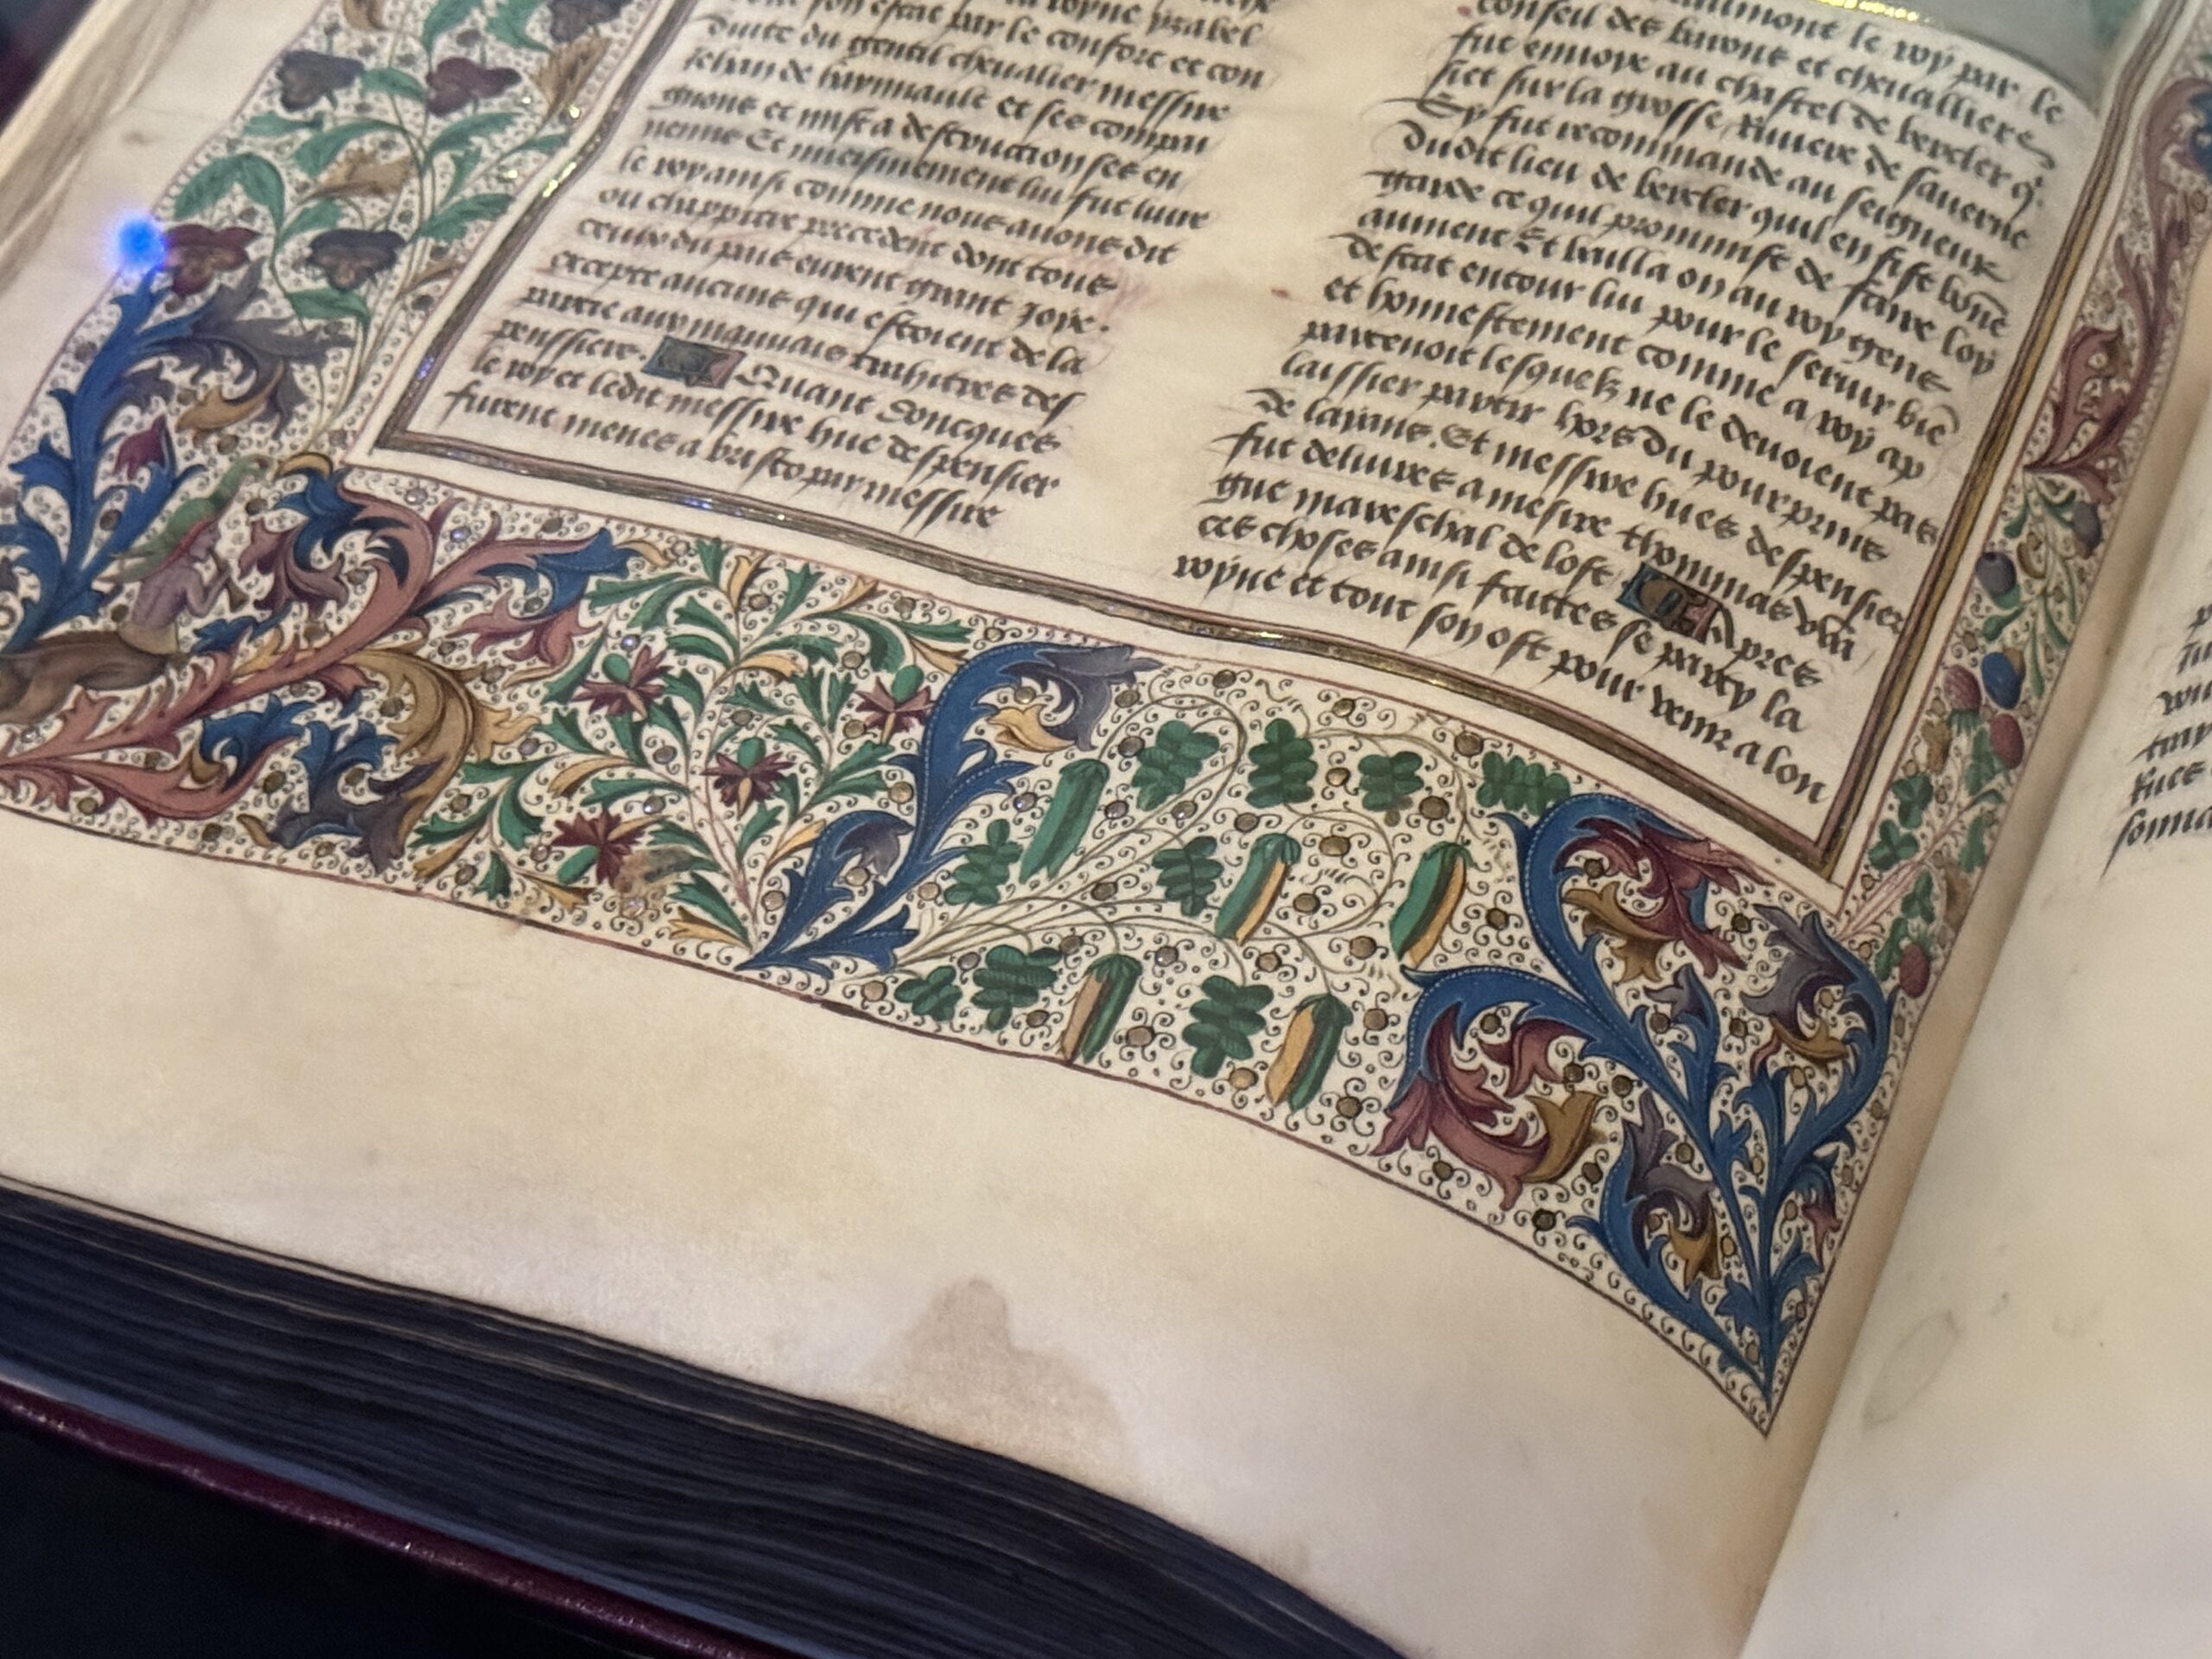 son estat par le confort et con
duite du gentil chevalier messire
Jehan de haynnault et ses compai
gnons et mise a destruction ses en
nemis Et mesmement luy fut livre
le roy ainsi comme nous avons dit
ou chappitre precedent dont tous
ceulx du pais eurent grant joye.
excepte aucuns qui estoient de la
partie aux mauvais trahitres des
penssiers. Quant doncques
le roy et ledit messire hue despensier
furent menes a bristo par messire
le roy par le
conseil des barons et chevalliers
fut envoye au chastel de bercler q̃
siet sur la grosse Riviere de saverne
Sy fut recommande au seigneur
dudit lieu de bercler quil en fist bonẽ
garde ce quil prommist de faire loy
aument Et bailla on au roy gens
destat entour luy pour le servir biẽ
et honnestement comme a roy ap
partenoit lesquelz ne le devoient pas
laissier partir hors du pourprins
de layans. Et messire hues despensier
fut delivres a mesire thommas
gue mareschal de lost Apres
ces choses ainsi faittes se party la
royne et tout son ost pour venir a lon